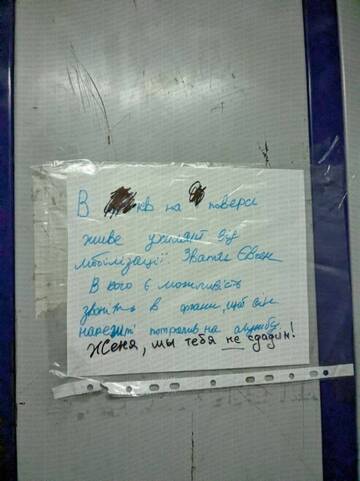 В кв на поверсі
живе ухилянт від
мобілізації. Звати Євген
В кого є можливість
звоніть в , щоб він
нарешті потрапив на службу
Женя, мы тебя не сдадим!